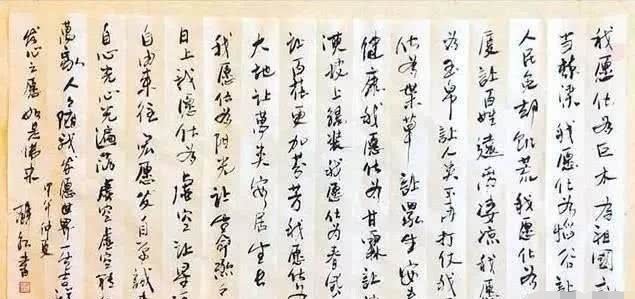 我愿化为巨木为祖國
当栋梁我愿化为稻谷让
人民免却飢荒我愿化为
厦让百姓遠离凄凉我愿
为玉帛让人类不再打仗我
化为药草让众生安
健康我愿化为甘霖让
漠披上绿装我愿化为春风
让百花更加芬芳我愿化
大地让萬类安居生长
我愿化为阳光让生命
日上我愿化为虚空让星
自由来往宏愿发自
自心光心光遍满虚空虚空
萬家人人随我发愿世界一片吉祥
发心立愿如是佛来
甲午仲夏
释 书